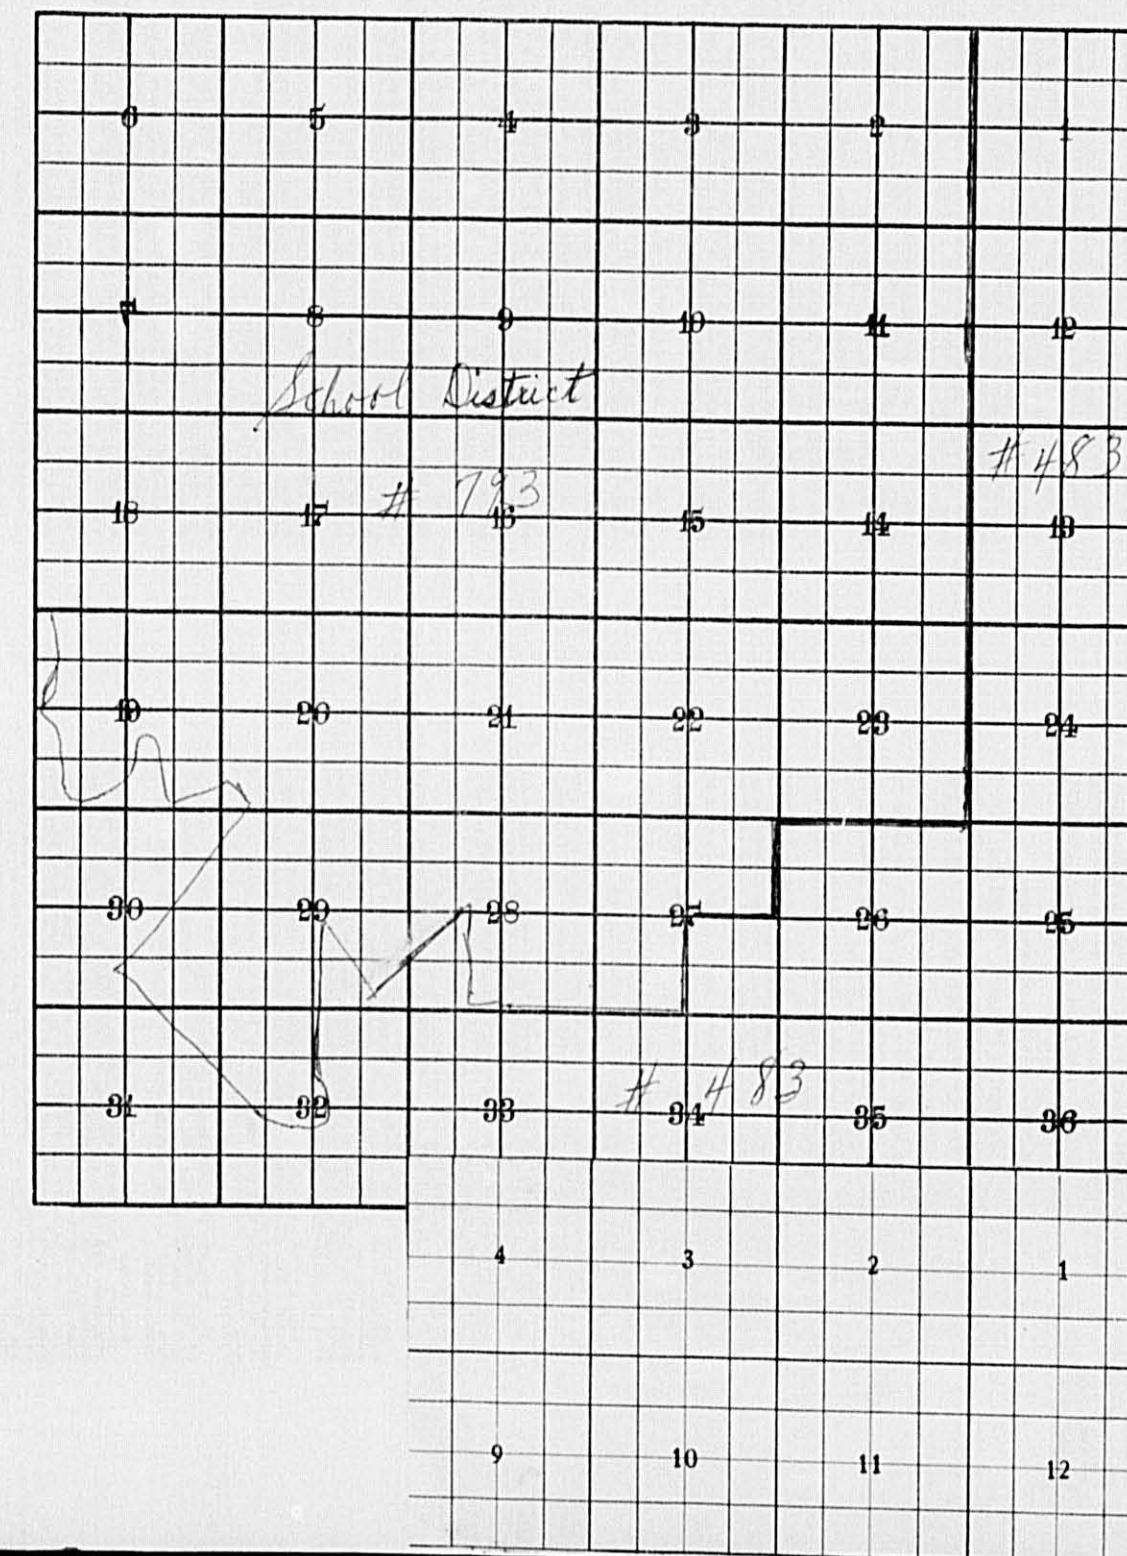 6 5 4 3 2 1
7 8 9 10 11 12
School District
# 483
# 793
18 17 16 15 14 13
19 20 21 22 23 24
30 29 28 27 26 25
# 483
31 32 33 34 35 36
4 3 2 1
9 10 11 12